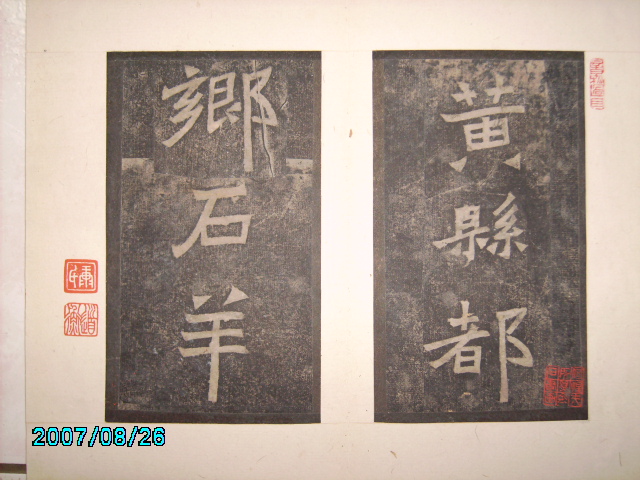 黃縣都
鄉石羊
2007/08/26